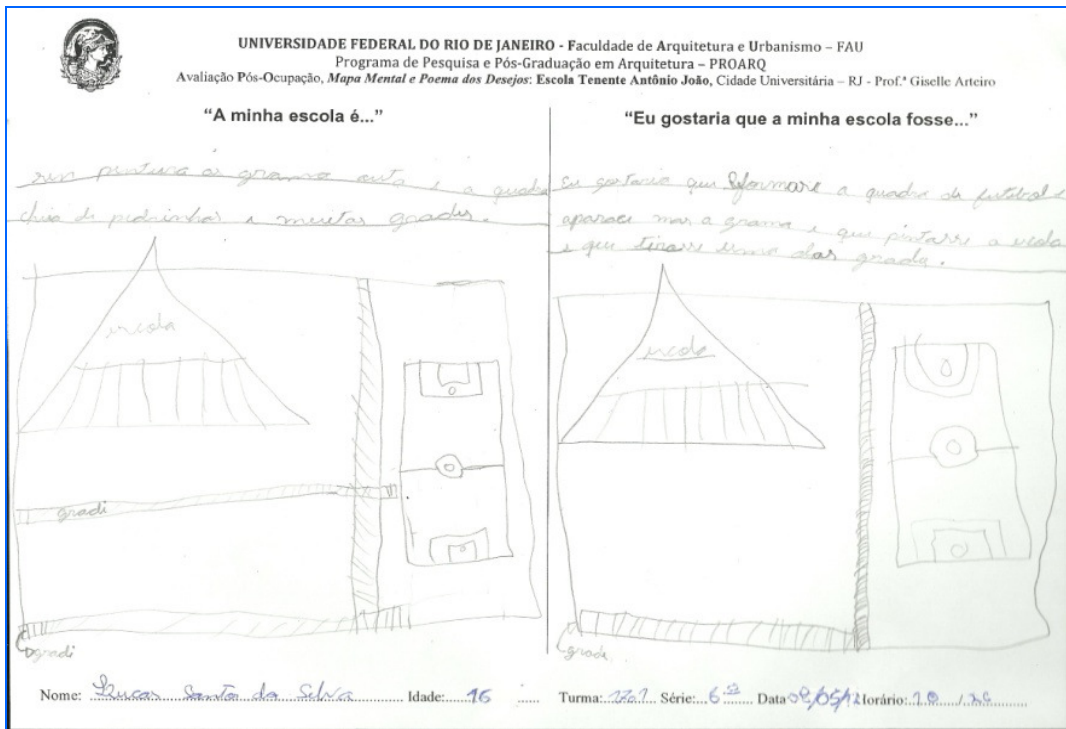 UNIVERSIDADE FEDERAL DO RIO DE JANEIRO - Faculdade de Arquitetura e Urbanismo – FAU
Programa de Pesquisa e Pós-Graduação em Arquitetura – PROARQ
Avaliação Pós-Ocupação, Mapa Mental e Poema dos Desejos: Escola Tenente Antônio João, Cidade Universitária – RJ - Prof.ª Giselle Arteiro
"A minha escola é..."
sen pintura a grama auta e a quadra
cheia de pedrinhas e muitas grades.
escola
gradi
gradi
"Eu gostaria que a minha escola fosse..."
Eu gostaria que Reformase a quadra de futebol e
a grama e que pintasse a escola
e que tirasse uma das grades.
escola
grade
Nome: Lucas Santo da Silva Idade: 16 Turma: 1701 Série: 6ª Data 08/05/12 Horário: 10